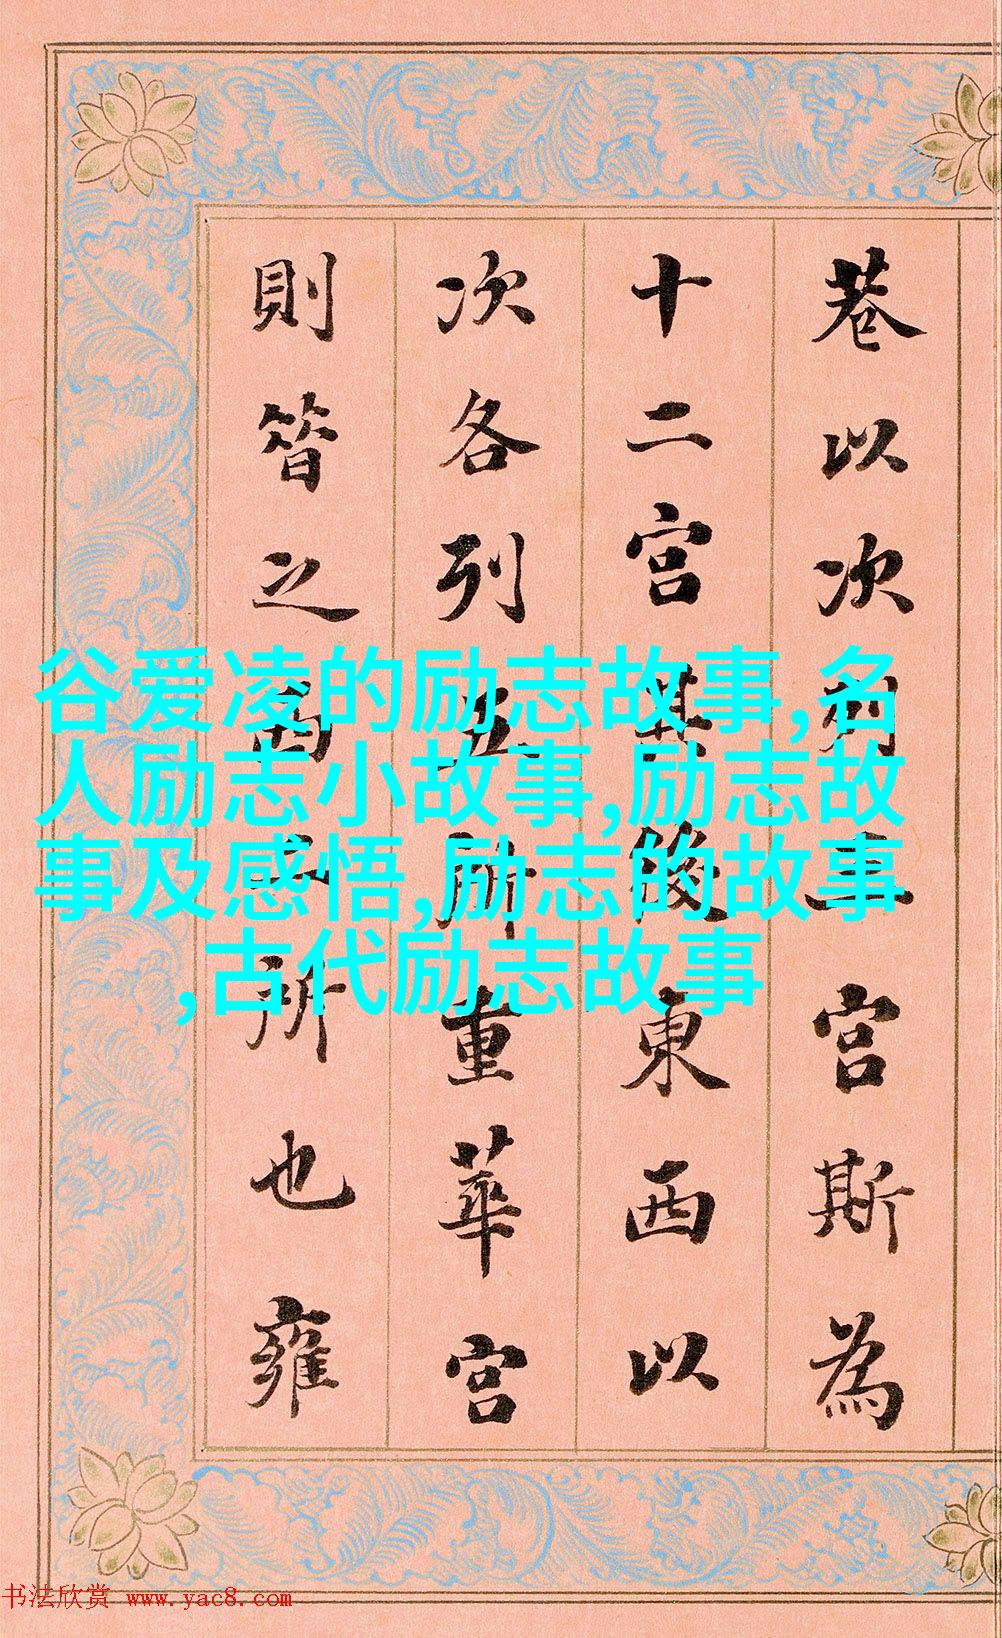 巷以次列宮斯為
十二宮其後東西以
次各列五所重華宮
則昔之西二所也雍
谷爱凌的励志故事,名
人励志小故事,励志故
事及感悟,励志的故事
,古代励志故事
书法欣赏 www.yac8.com